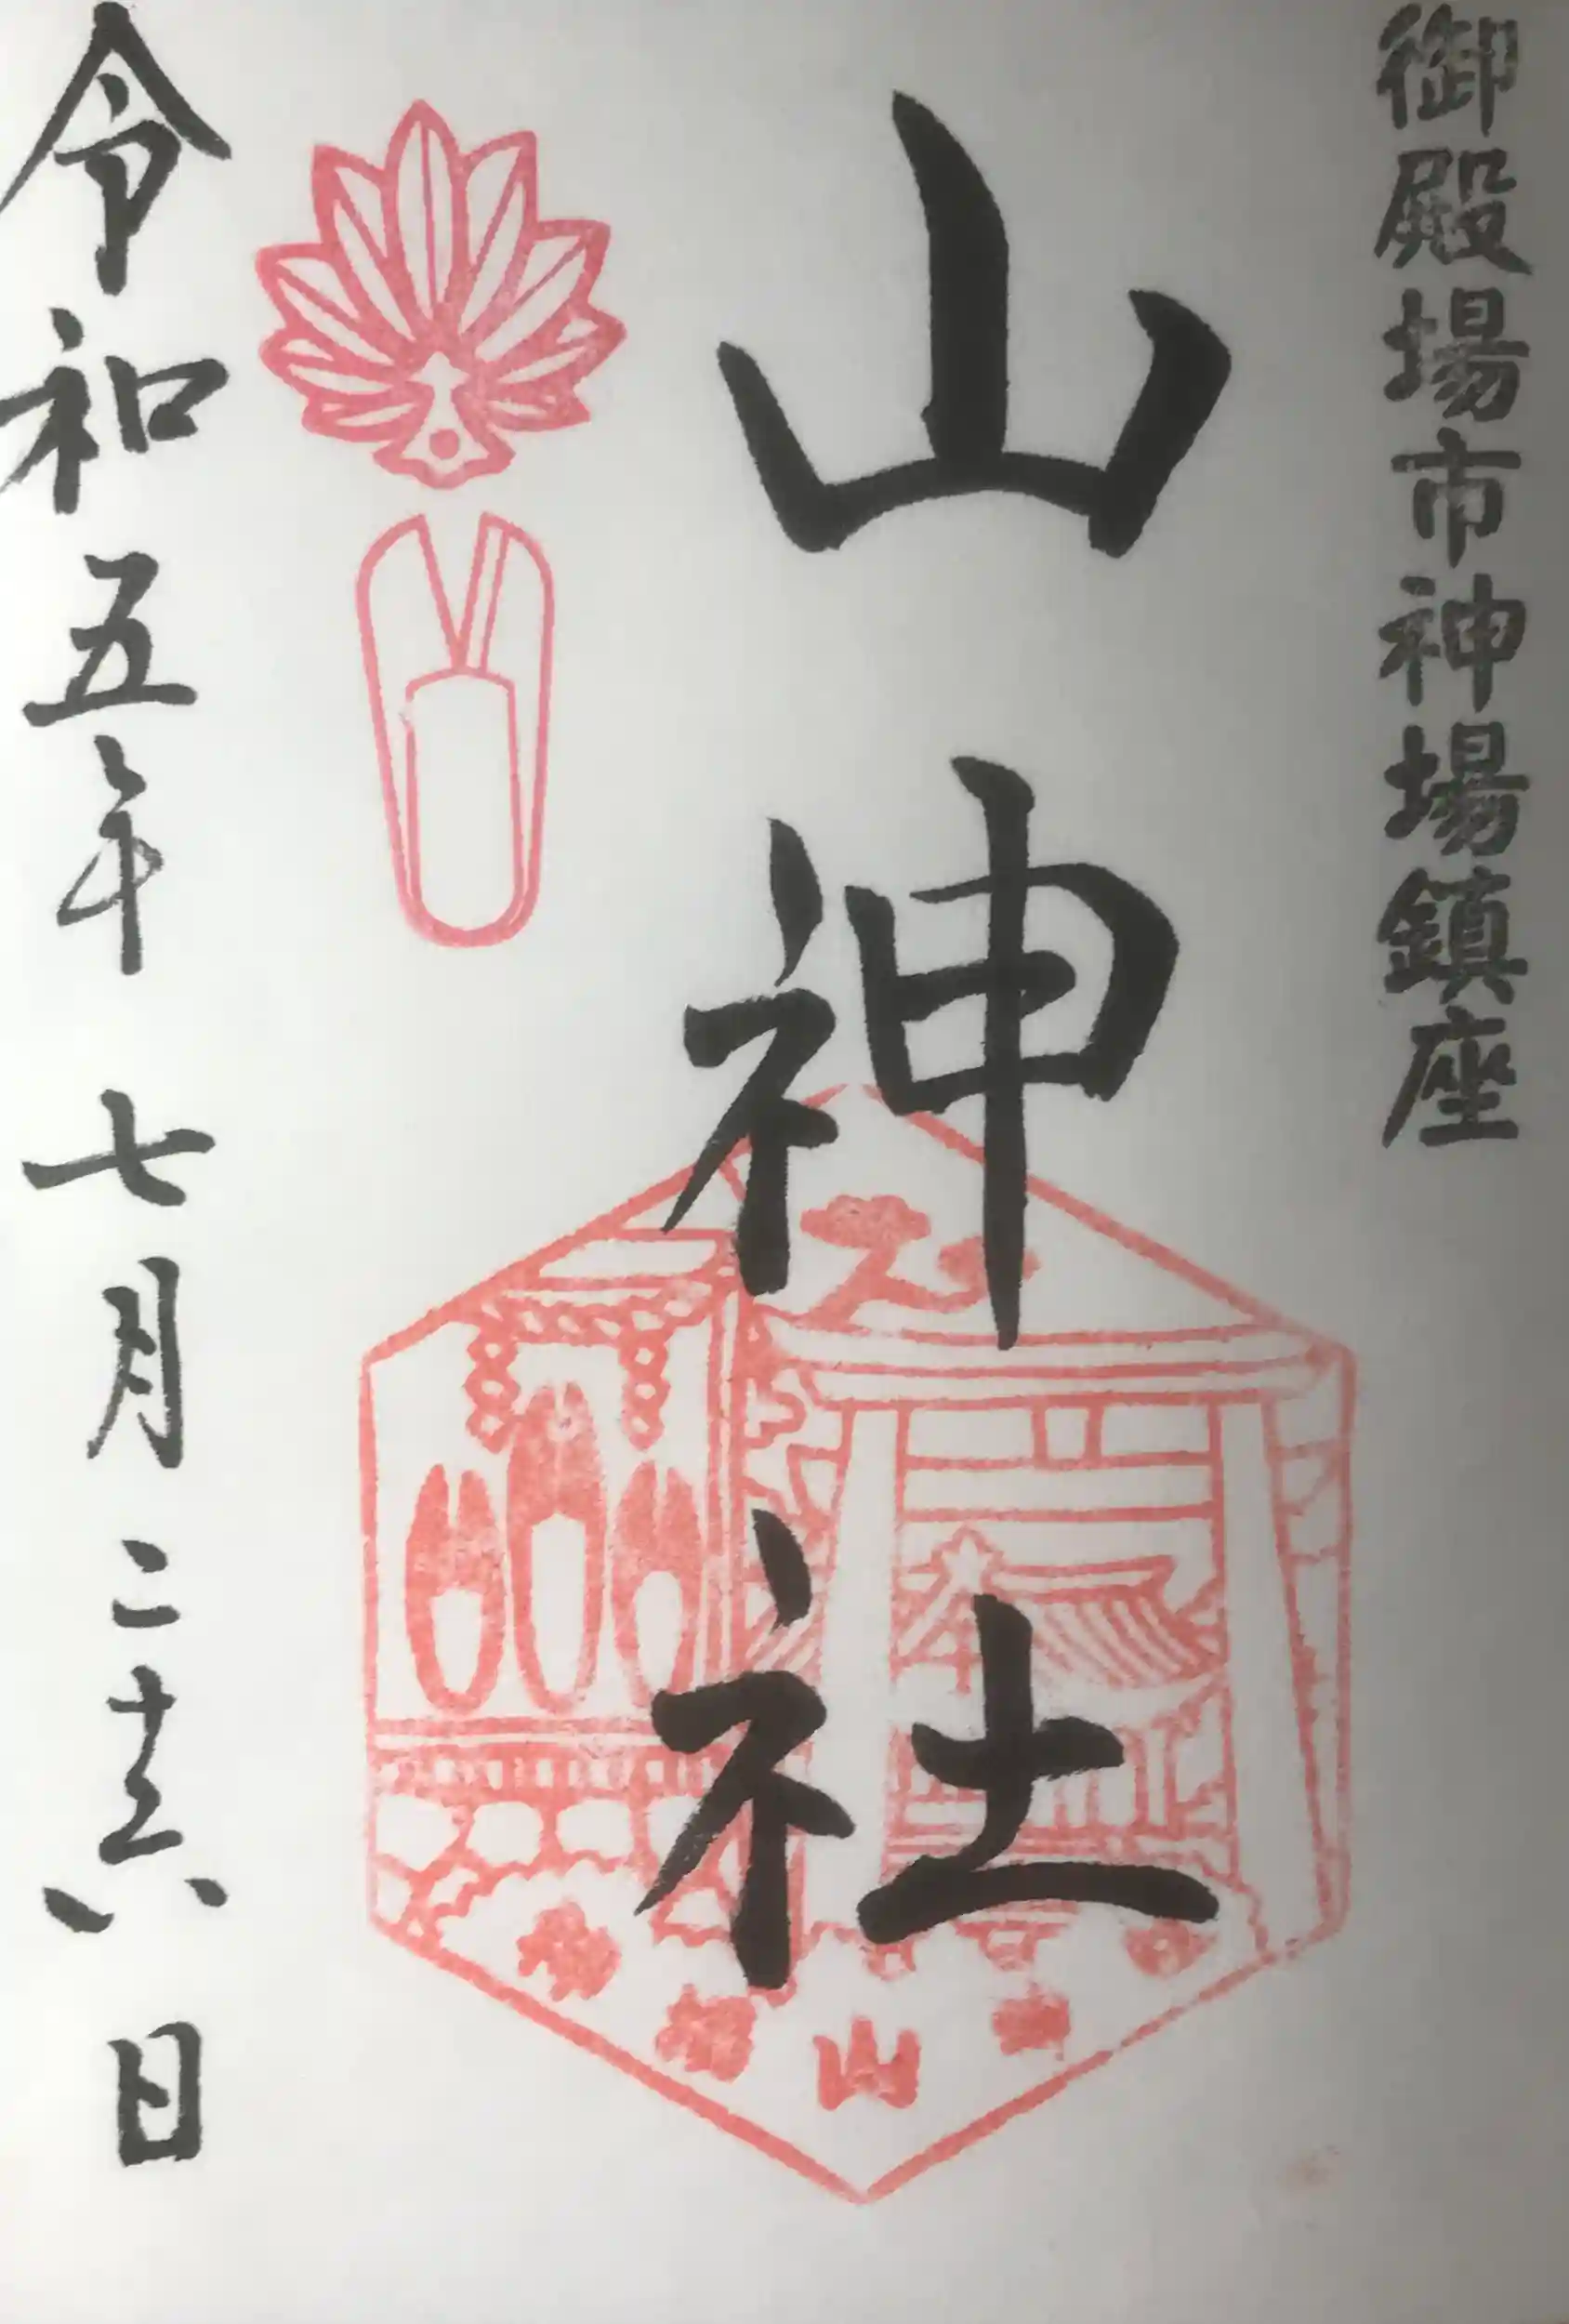 御殿場市神場鎮座
山神社
令和五年七月二十六日